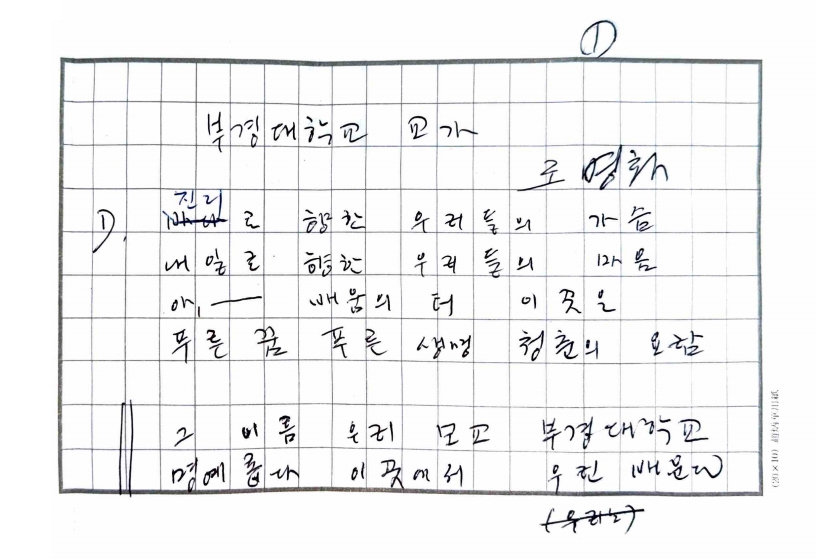 ①
부경대학교 교가
로 영해
진리
1). 바다로 향한 우리들의 가슴
내일로 향한 우리들의 마음
아, — 배움의 터 이 곳은
푸른 꿈 푸른 생명 청춘의 요람
그 이름 우리 모교 부경대학교
명예롭다 이 곳에서 우린 배운다
(우리는)
(20×10)